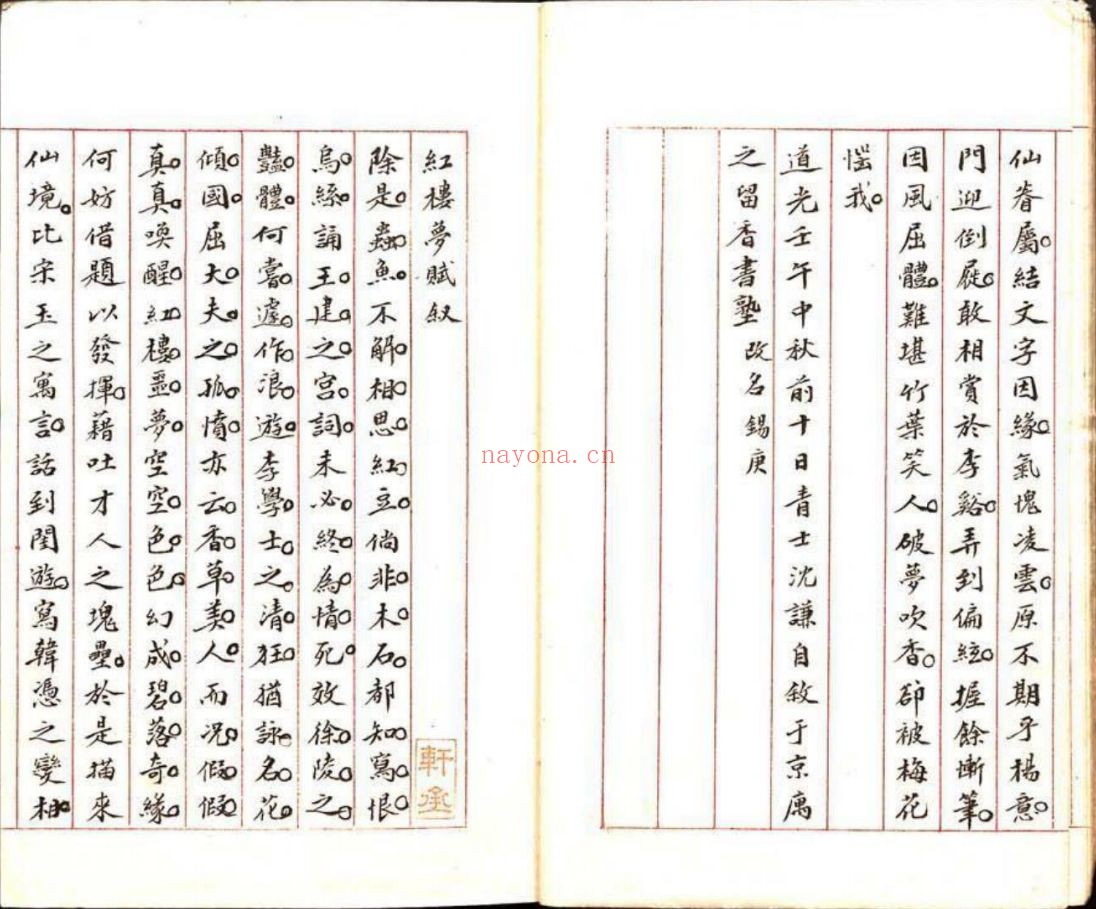 仙眷屬結文字因緣氣愧凌雲原不期乎楊意
門迎倒屣敢相賞於李谿弄到偏絃握餘慚筆
因風屈體難堪竹葉笑人破夢吹香卻被梅花
惱我
道光壬午中秋前十日青士沈謙自敘于京寓
之留香書塾改名錫庚
紅樓夢賦敘
除是蟲魚不解相思紅豆倘非木石都知寫恨
烏絲誦王建之宮詞未必終為情死效徐陵之
豔體何嘗遽作浪遊李學士之清狂猶詠名花
傾國屈大夫之孤憤亦云香草美人而況假假
真真喚醒紅樓噩夢空空色色幻成碧落奇緣
何妨借題以發揮藉吐才人之塊壘於是描來
仙境比宋玉之寓言話到閨遊寫韓憑之變相
nayona.cn